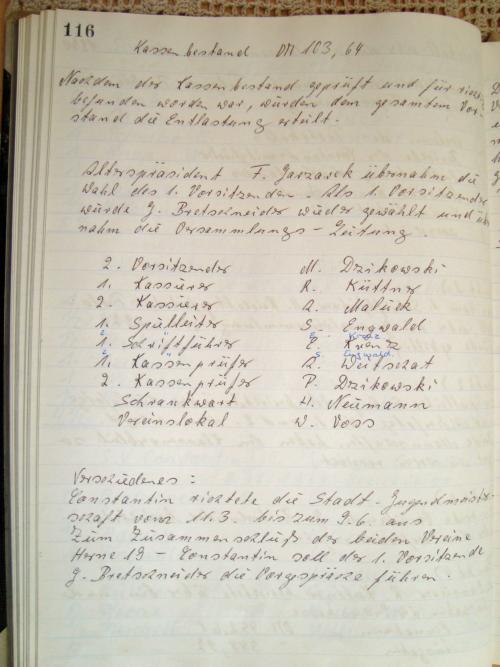 116
Kassenbestand DM 103,64
Nachdem der Kassenbestand geprüft und für richtig
befunden worden war, wurden dem gesamtem Vor-
stand die Entlastung erteilt.
Alterspräsident F. Garzarek übernahm die
Wahl des 1. Vorsitzenden. Als 1. Vorsitzender
wurde G. Bretschneider wieder gewählt und über
nahm die Versammlungs-Leitung.
2. Vorsitzender M. Dzikowski
1. Kassierer K. Küttner
2. Kassierer A. Maluck
1. Spielleiter S. Engwald
2 " E. Kranz
1. Schriftführer E. Kranz
2 " S. Engwald
1. Kassenprüfer R. Weitschat
2. Kassenprüfer P. Dzikowski
Schrankwart H. Neumann
Vereinslokal W. Voss
Verschiedenes:
Constantin richtete die Stadt-Jugendmeister
schaft vom 11.3. bis zum 9.6. aus
Zum Zusammenschluß der beiden Vereine
Herne 19 - Constantin soll der 1. Vorsitzende
G. Bretschneider die Vorgespräche führen.